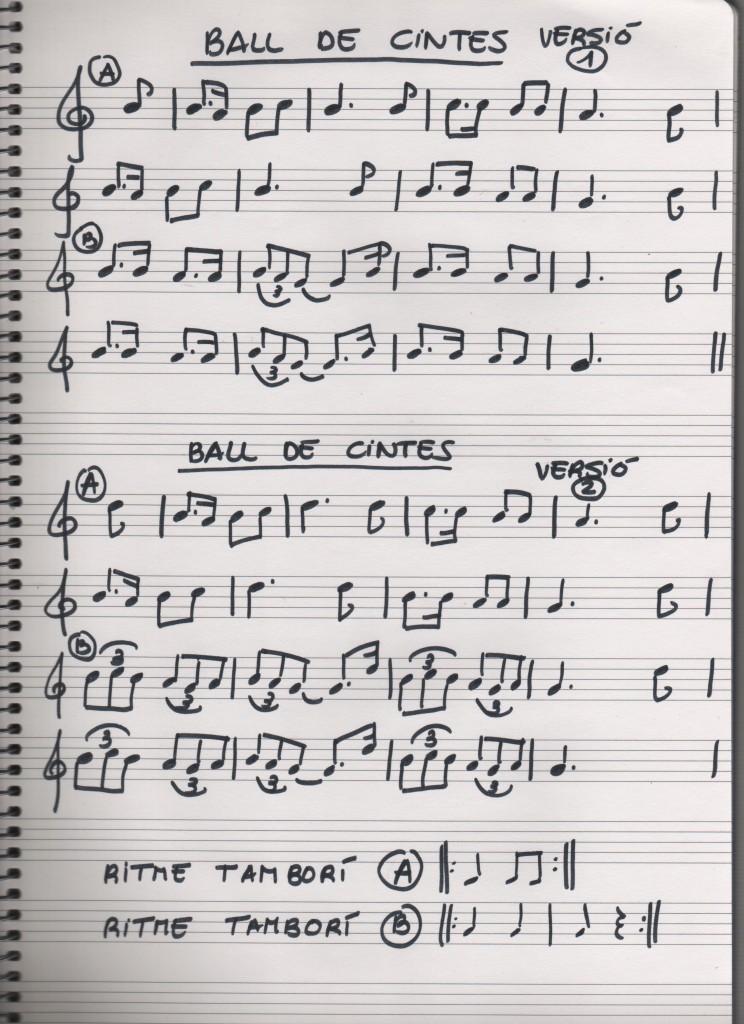 BALL DE CINTES VERSIÓ 1
A
B
3
3
BALL DE CINTES
VERSIÓ 2
A
B 3
3 3 3 3
3 3
3 3 3
RITME TAMBORÍ A
RITME TAMBORÍ B